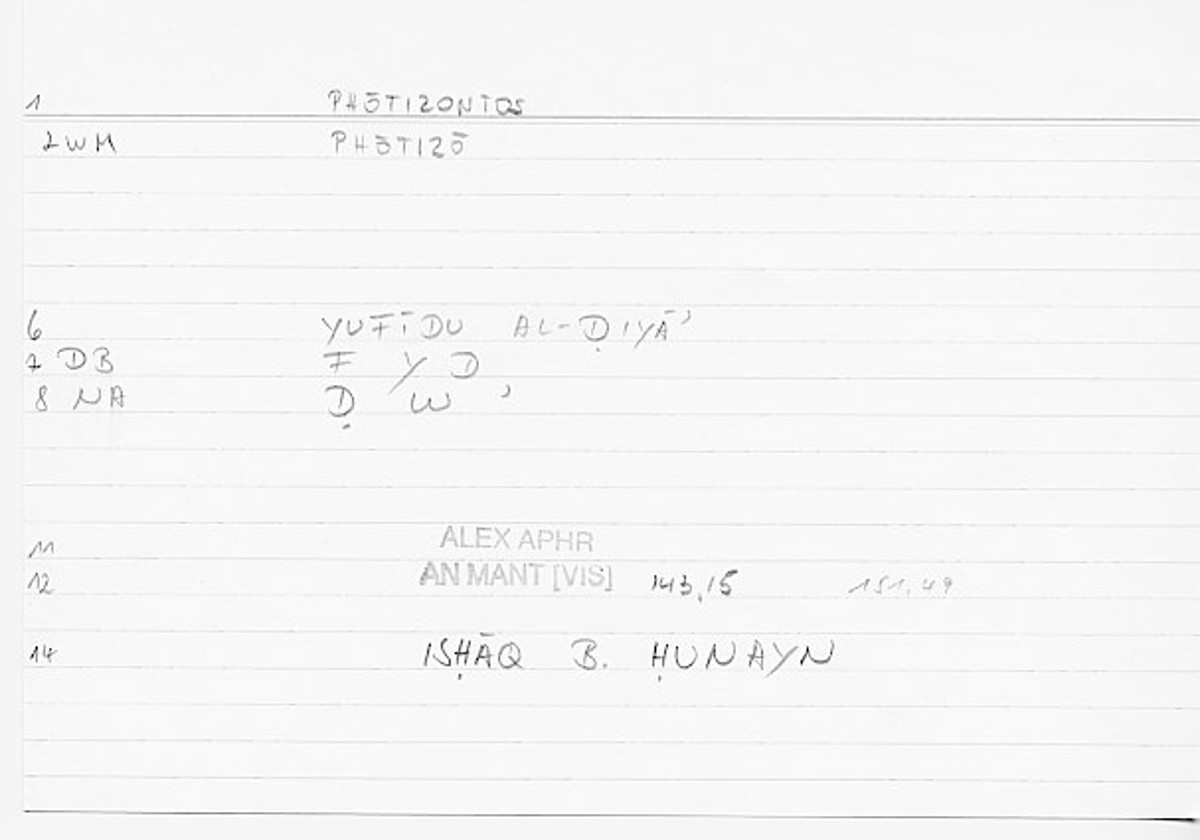 1 PHŌTIZONTOS
2 WM PHŌTIZŌ
6 YUFĪDU AL-ḌIYĀʾ
7 DB F Y D
8 NA Ḍ W ʾ
11 ALEX APHR
12 AN MANT [VIS] 143,15 151.49
14 ISḤĀQ B. ḤUNAYN